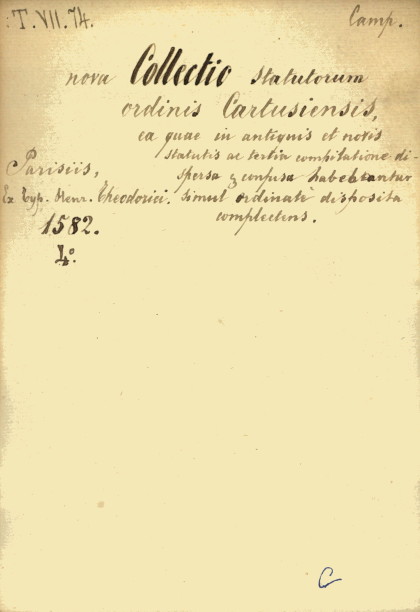 T. VII. 74.
Camp.
nova Collectio statutorum
ordinis Cartusiensis,
ea quae in antiquis et novis
statutis ac tertia compilatione di-
spersa & confusa habebantur
simul ordinatè disposita
complectens.
Parisiis,
Ex Typ. Henr. Theodorici.
1582.
4º.
C